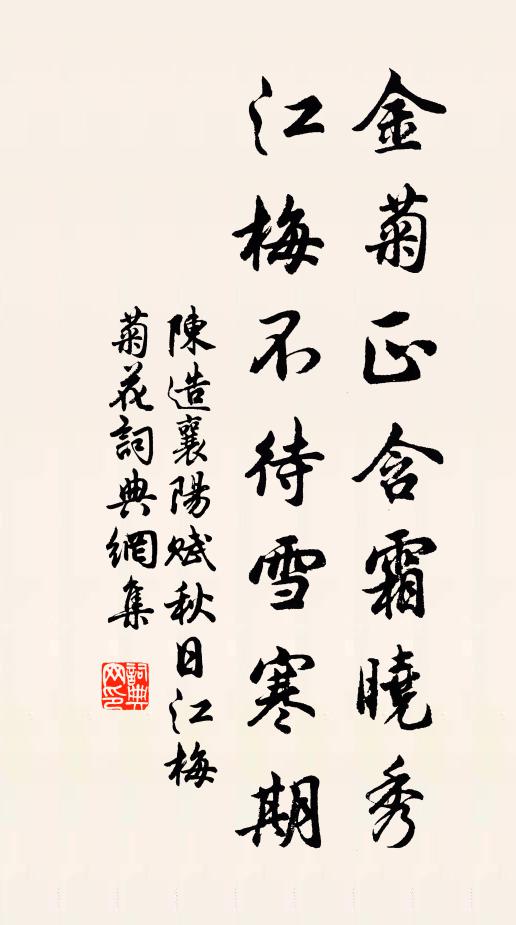 金菊正含霜曉秀
江梅不待雪寒期
陳造襄陽賦秋日江梅
菊花詞典網集
詞典
网印